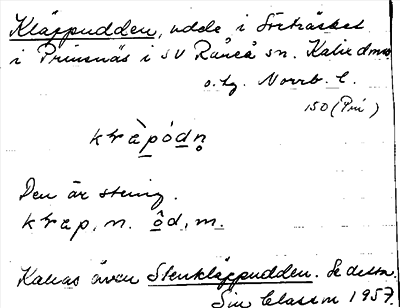 Kläppudden, udde i Sörträsket
i Prinsnäs i SV Råneå sn. Kalix dms
o. tg. Norrb. l.
150 (Pri)
Den är stenig.
n. m.
Kallas även Stenkläppudden. Se detta.
Siv Classon 1957.